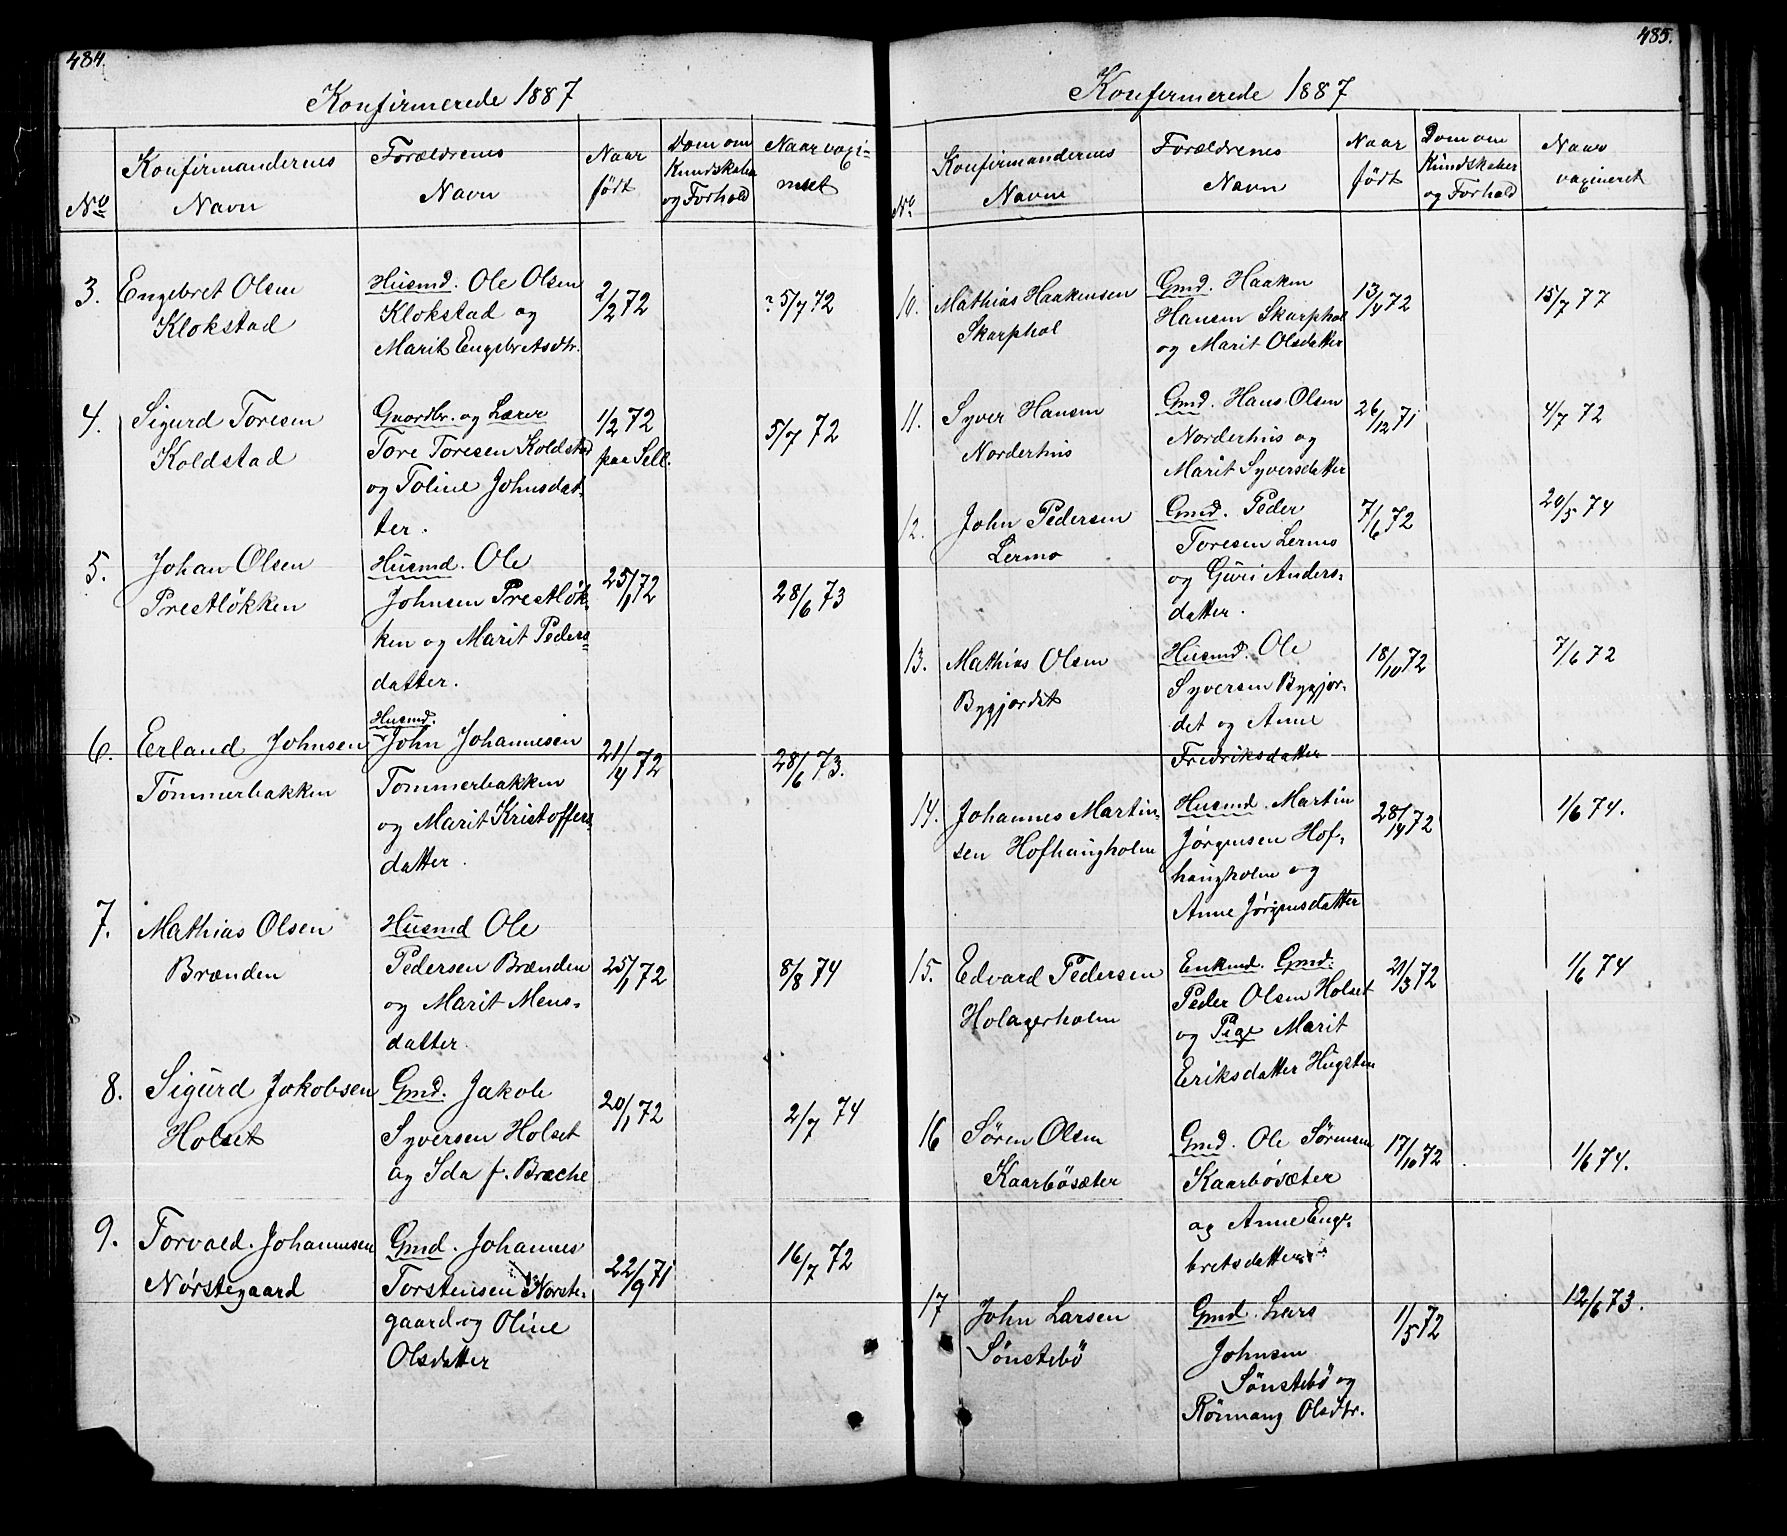 484.
Konfirmerede 1887
No
Konfirmandernes
Navn
Forældrenes
Navn
Naar
født
Dom om
Kundskaber
og Forhold
Naar vaxi-
neret
3. Engebret Olsen
Klokstad
Husmd. Ole Olsen
Klokstad og
Marit Engebretsdtr.
2/2 72
? 5/7 72
4. Sigurd Toresen
Koldstad
Gaardbr. og Lærer
Tore Toresen Koldstad
og Toline Johnsdat-
ter.
1/2 72
paa Sell.
5/7 72
5. Johan Olsen
Prestløkken
Husmd. Ole
Johnsen Prestløk-
ken og Marit Peders-
datter.
25/1 72
28/6 73
6. Erland Johnsen
Tømmerbakken
Husmd.
John Johannesen
Tømmerbakken
og Marit Kristoffers-
datter.
21/4 72
28/6 73.
7. Mathias Olsen
Brænden
Husmd Ole
Pedersen Brænden
og Marit Mons-
datter.
25/1 72
8/8 74
8. Sigurd Jakobsen
Holset
Gmd. Jakob
Syversen Holset
og Ida f. Brache
20/1 72
2/7 74
9. Torvald Johannesen
Nørstegaard
Gmd. Johannes
Torstensen Nørste-
gaard og Oline
Olsdatter
22/9 71
16/7 72
485.
Konfirmerede 1887
No
Konfirmandernes
Navne
Forældrenes
Navn
Naar
født
Dom om
Kundskaber
og Forhold
Naar
vaxineret
10. Mathias Haakensen
Skarphol
Gmd. Haaken
Hansen Skarphol
og Marit Olsdatter
13/4 72
15/7 77
11. Syver Hansen
Norderhus
Gmd. Hans Olsen
Norderhus og
Marit Syversdatter
26/12 71
4/7 72
12. John Pedersen
Lermo
Gmd. Peder
Toresen Lermo
og Guri Anders-
datter.
7/6 72
20/5 74
13. Mathias Olsen
Bygjordet
Husmd. Ole
Syversen Bygjor-
det og Anne
Fredriksdatter
18/10 72
7/6 72
14. Johannes Martin-
sen Hofhaugholm
Husmd. Martin
Jørgensen Hof-
haugholm og
Anne Jørgensdatter
28/4 72
1/6 74.
15. Edvard Pedersen
Holagerholm
Enkmd. Gmd.
Peder Olsen Holset
og Pige Marit
Eriksdatter Hugsten
21/3 72
1/6 74
16 Søren Olsen
Kaarbøsæter
Gmd. Ole Sørensen
Kaarbøsæter
og Anne Enge-
bretsdatter
17/10 72
1/6 74.
17 John Larsen
Sønstebø
Gmd. Lars
Johnsen
Sønstebø og
Rønnaug Olsdtr.
1/5 72
12/6 73.